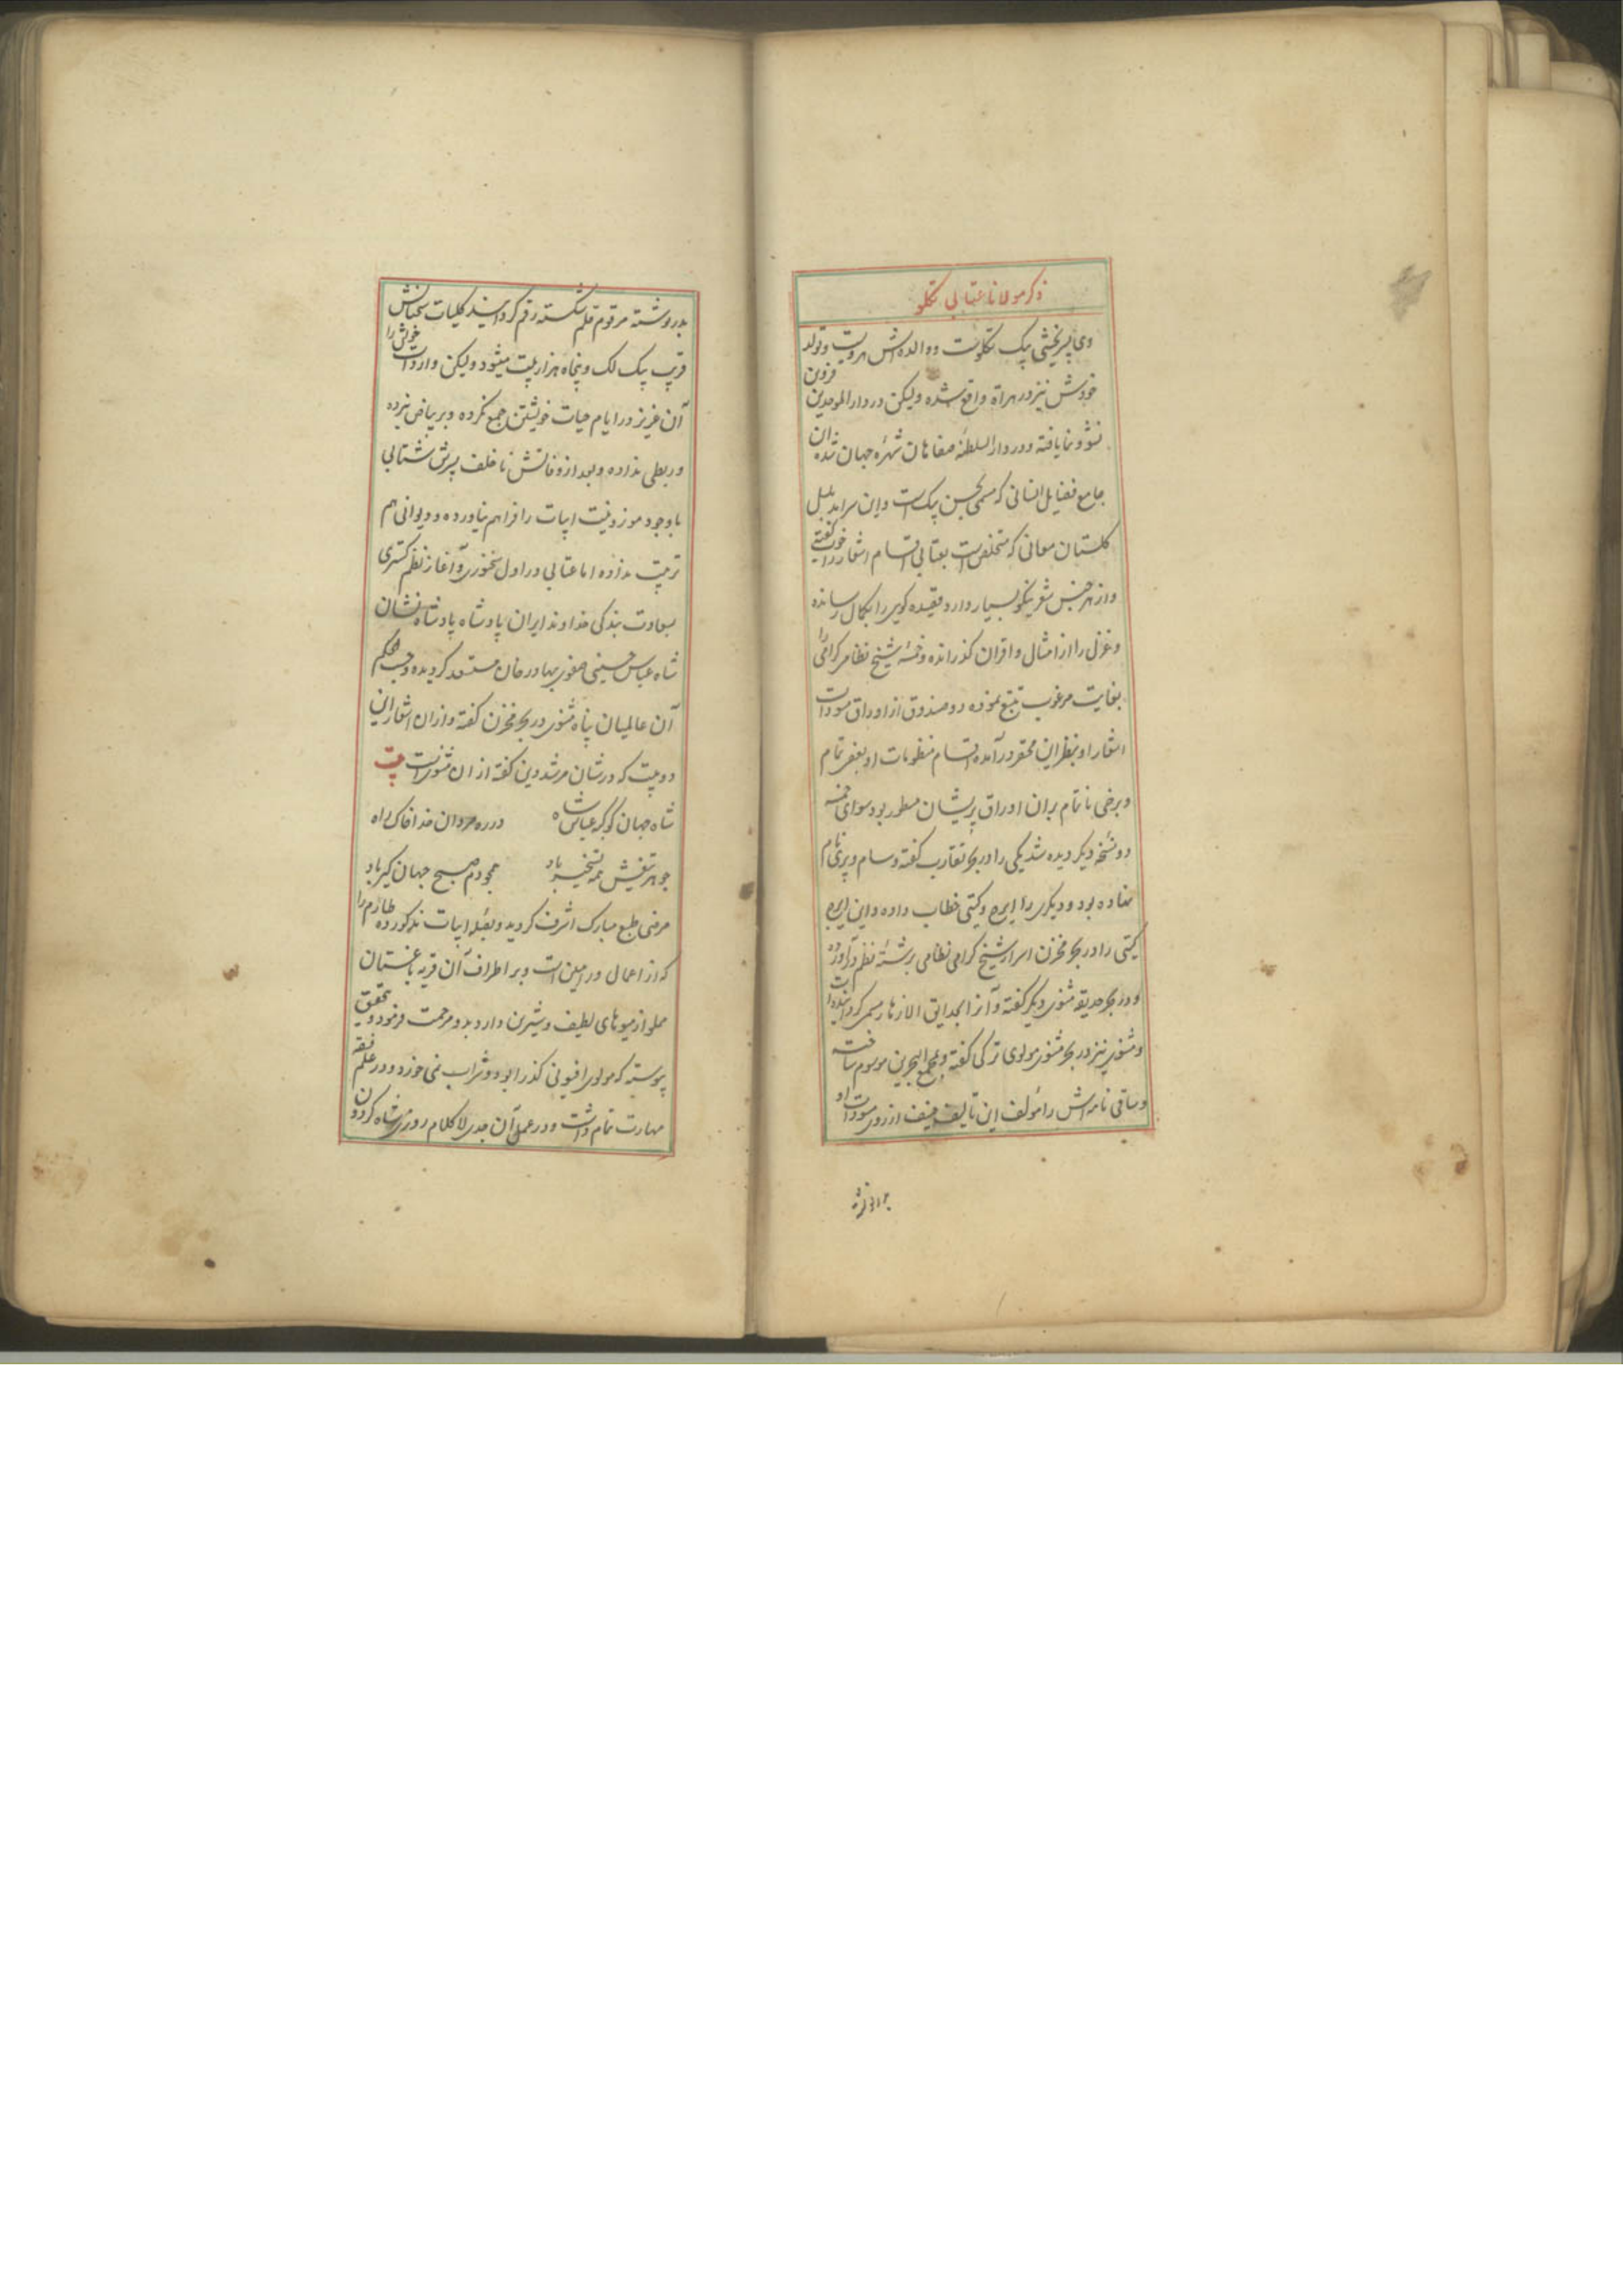 ذکر مولانا عتابی تکلو
وی پسر بخشی بیک تکلوست و والده اش هرویست و تولد
خودش نیز در هراة واقع شده ولیکن در دارالموحدین قزوین
نشو و نما یافته و در دارالسلطنه صفاهان شهره جهان شده آن
جامع فضایل انسانی که مسمی بحسن بیک است و این سراینده بلبل
گلستان معانی که متخلص است بعتابی اقسام اشعار را خوب گفتے
و از هر جنس شعر نیکو بسیار دارد قصیده کویی را بکمال رسانده
و غزل را از امثال و اقران گذرانده و خمسه شیخ نظامی گرامی را
بغایت مرغوب تتبع نموده دو صندوق از اوراق مسودات
اشعار او بنظر این محقر درآمده اقسام منظومات او بعضی تمام
و برخی ناتمام بران اوراق پریشان مسطور بود سوای خمسه
دو نسخه دیگر دیده شد یکی را در بحر تقارب گفته و سام و پری نام
نهاده بود و دیگری را ایرج و گیتی خطاب داده و این ایرج
گیتی را در بحر مخزن اسرار شیخ گرامی نظامی برشته نظم درآورده
و در بحر حدیقه مثنوی دیگر گفته و آنرا بحدایق الازهار مسمی گردانیده است
و مثنوی نیز در بحر مثنوی مولوی ترکی گفته و بمجمع البحرین موسوم ساخته
و ساقی نامه اش را مؤلف این تالیف ضعیف از روی مسودات او
بدر وشته مرقوم قلم شکسته رقم گردانید کلیات سخنانش
قریب یک لک و پنجاه هزار بیت میشود ولیکن واردات خویش را
آن عزیز در ایام حیات خویشتن جمع نکرده و بر بیاض نبرده
و ربطی نداده و بعد از وفاتش ناخلف پسرش شتابی
باوجود موزونیت ابیات را فراهم نیاورده و دیوانی هم
ترتیب نداده اما عتابی در اول سخنوری و آغاز نظم گستری
بسعادت بندگی خداوند ایران پادشاه پادشاه نشان
شاه عباس حسینی صفوی بهادر خان مستعد گردیده و حسب الحکم
آن عالمیان پناه مثنوی در بحر مخزن گفته و ازان اشعار این
دو بیت که در شان مرشد دین گفته از ان مثنویست بیت
شاه جهان کوکبه عباس شاه در ره مردان خدا خاک راه
جوهر تیغش همه تسخیر باد همچو دم صبح جهان گیر باد
مرضی طبع مبارک اشرف گردید و بصله ابیات مذکور ده طارم را
که از اعمال ورامین است و بر اطراف آن قریه باغستان
مملو از میوهای لطیف و شیرین دارد بدو مرحمت فرمود و بتحقیق
پیوسته که مولوی افیونی گذرا بود و شراب نمی خورد و در علم فقه
مهارت تمام داشت و در عمل آن جدی لا کلام روزی شاه گردون